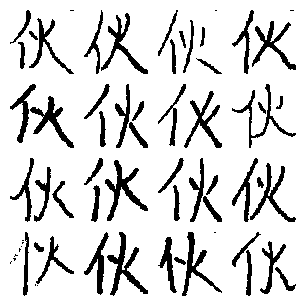 伙伙伙伙
伙伙伙伙
伙伙伙伙
伙伙伙伙